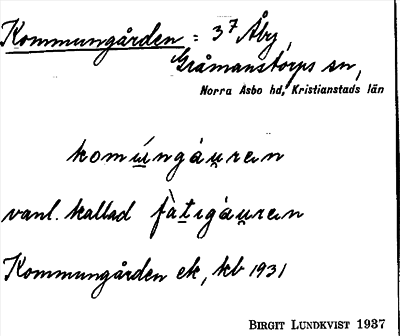 Kommungården : 3⁷ Åby,
Gråmanstorps sn,
Norra Åsbo hd, Kristianstads län
komúngáu̯ræn
vanl. kallad fàtıgáu̯ræn
Kommungården ek, kb 1931
BIRGIT LUNDKVIST 1937